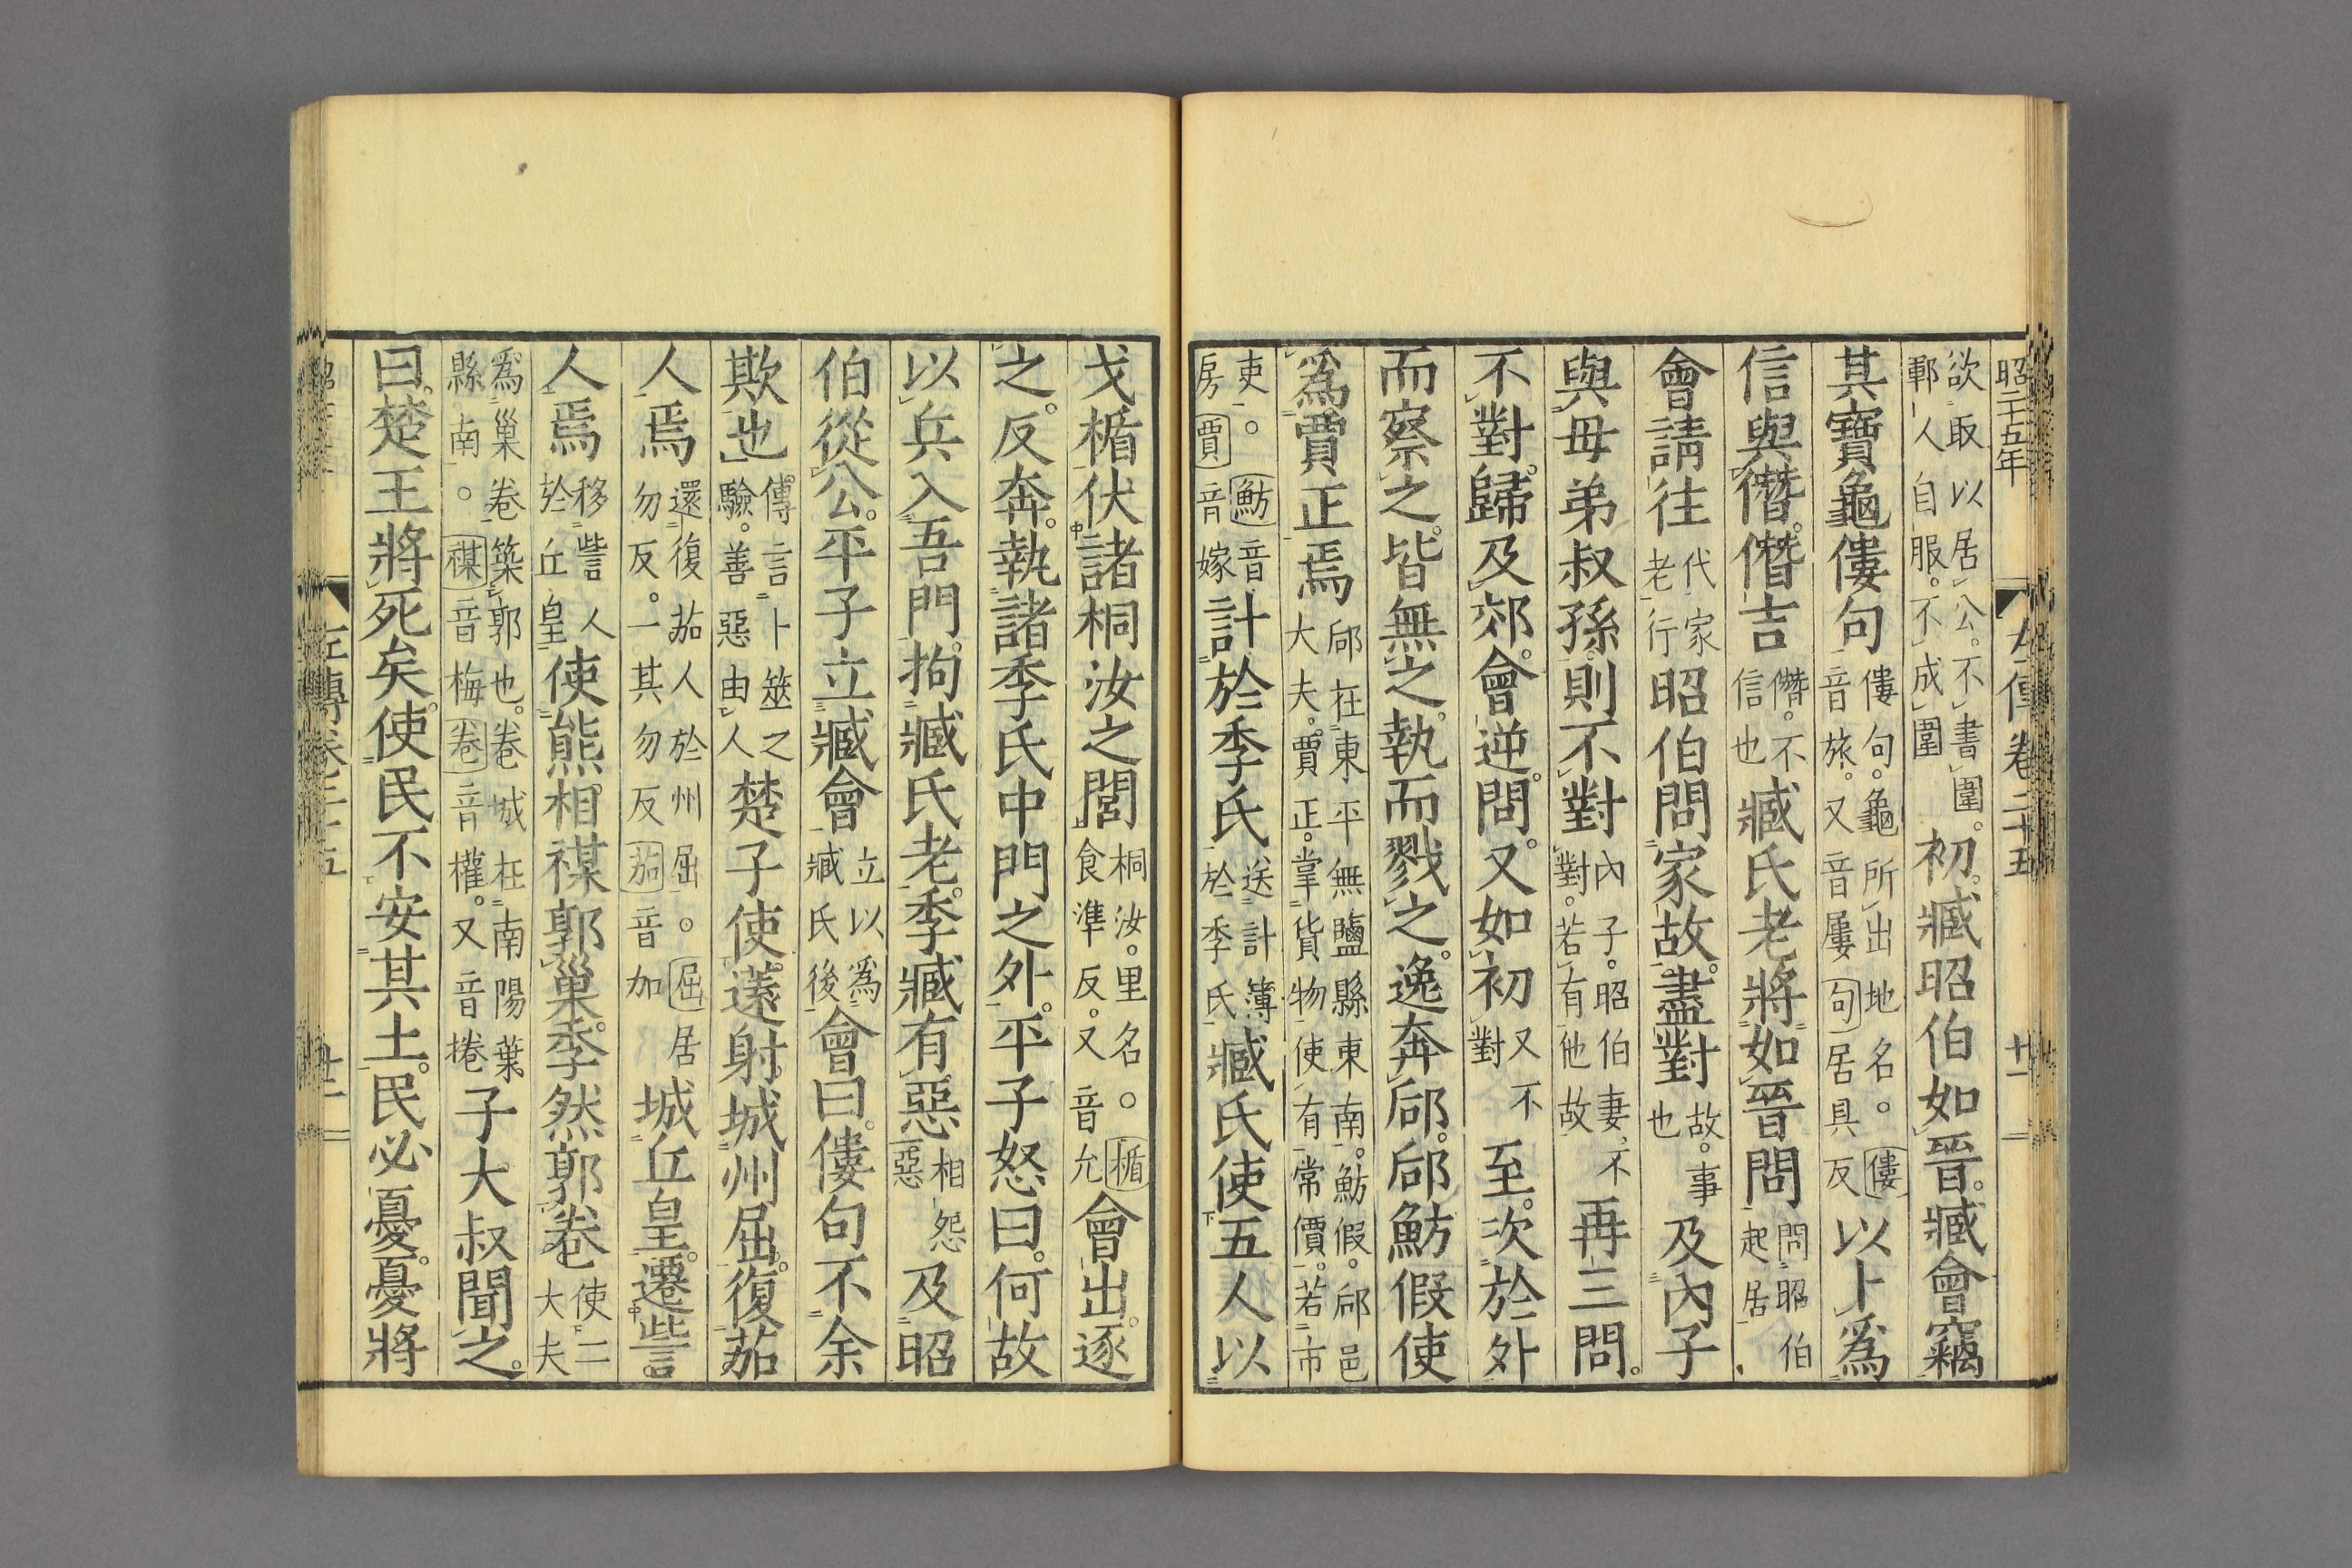 昭二十五年 左傳卷二十五 廿一
欲取以居公不書圍鄆人自服不成圍初臧昭伯如晉臧會竊
其寶龜僂句僂句龜所出地名。僂音旅又音屢句居具反以卜爲
信與僭僭吉僭不信也臧氏老將如晉問問昭伯起居
會請往代家老行昭伯問家故盡對故事也及內子
與母弟叔孫則不對內子昭伯妻不對若有他故再三問
不對歸及郊會逆問又如初又不對至次於外
而察之皆無之執而戮之逸奔郈郈魴假使
爲賈正焉郈在東平無鹽縣東南魴假郈邑大夫賈正掌貨物使有常價若市
吏。魴音房賈音嫁計於季氏送計簿於季氏臧氏使五人以
戈楯伏諸桐汝之閭桐汝里名。楯食準反又音允會出逐
之反奔執諸季氏中門之外平子怒曰何故
以兵入吾門拘臧氏老季臧有惡相怨惡及昭
伯從公平子立臧會立以爲臧氏後會曰僂句不余
欺也傳言卜筮之驗善惡由人楚子使薳射城州屈復茄
人焉還復茄人於州屈。屈居勿反一其勿反茄音加城丘皇遷訾
人焉移訾人於丘皇使熊相禖郭巢季然郭卷使二大夫
爲巢卷築郭也卷城在南陽葉縣南。禖音梅卷音權又音捲子大叔聞之
曰楚王將死矣使民不安其土民必憂憂將
左傳卷二十五